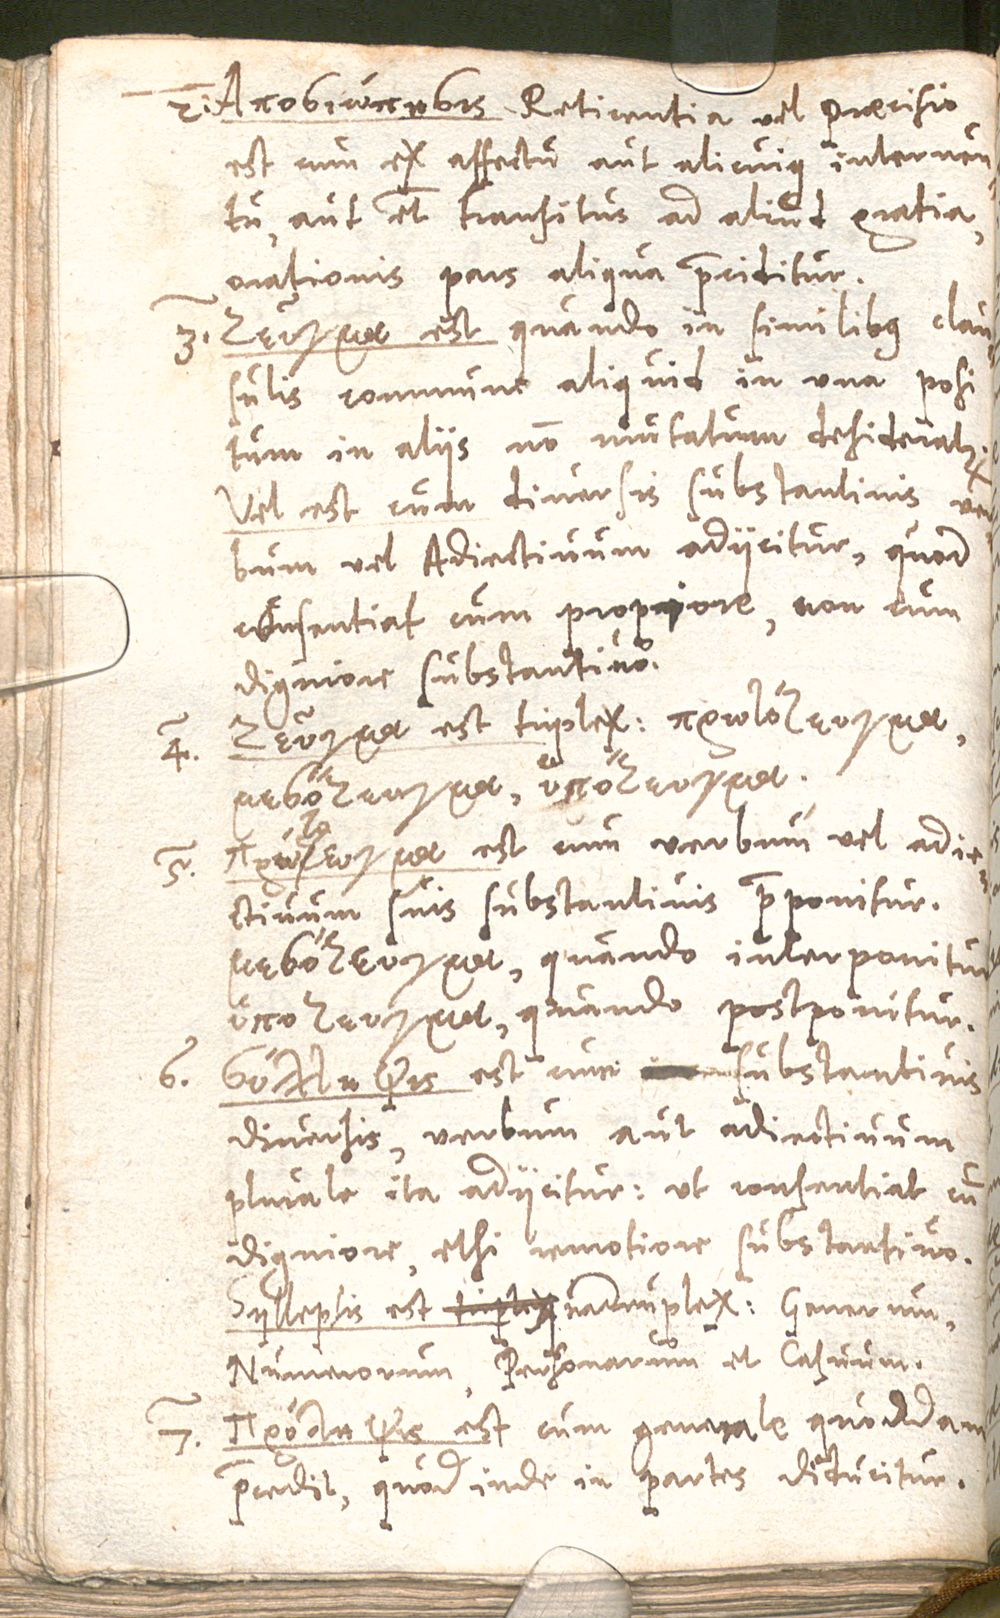 2. Αποσιώπησις Reticentia vel præcisio
est cum ex affectu aut alicuiq interuen
tu, aut et transitus ad aliud gratia,
orationis pars aliqua p̄ciditur.
3. Ζεῦγμα est quando in similibq clau
sulis commune aliquid in vna posi
tum in aliis nō mutatum desideratr.
Vel est cum diuersis substantiuis ver
bum vel Adiectiuum adijcitur, quod
consentiat cum propiore, non cum
digniore substantiuo.
4. Ζεῦγμα est triplex: πρωτόζευγμα,
μεσόζευγμα, ὑπόζευγμα.
5. Πρωτόζευγμα est cum verbum vel adie
ctiuum suis substantiuis p̄ponitur.
μεσόζευγμα, quando interponitur
ὑποζευγμα, quando postponitur.
6. Σύλληψις est cum substantiuis
diuersis, verbum aut adiectiuum
plurale ita adijcitur: vt consentiat cū
digniore, etsi remotiore substantiuo.
Syllepsis est triplex quadruplex: Generum,
Numerorum, Personarum et Casuum.
7. Πρόληψις est cum generale quoddam
p̄cedit, quod inde in partes diducitur.